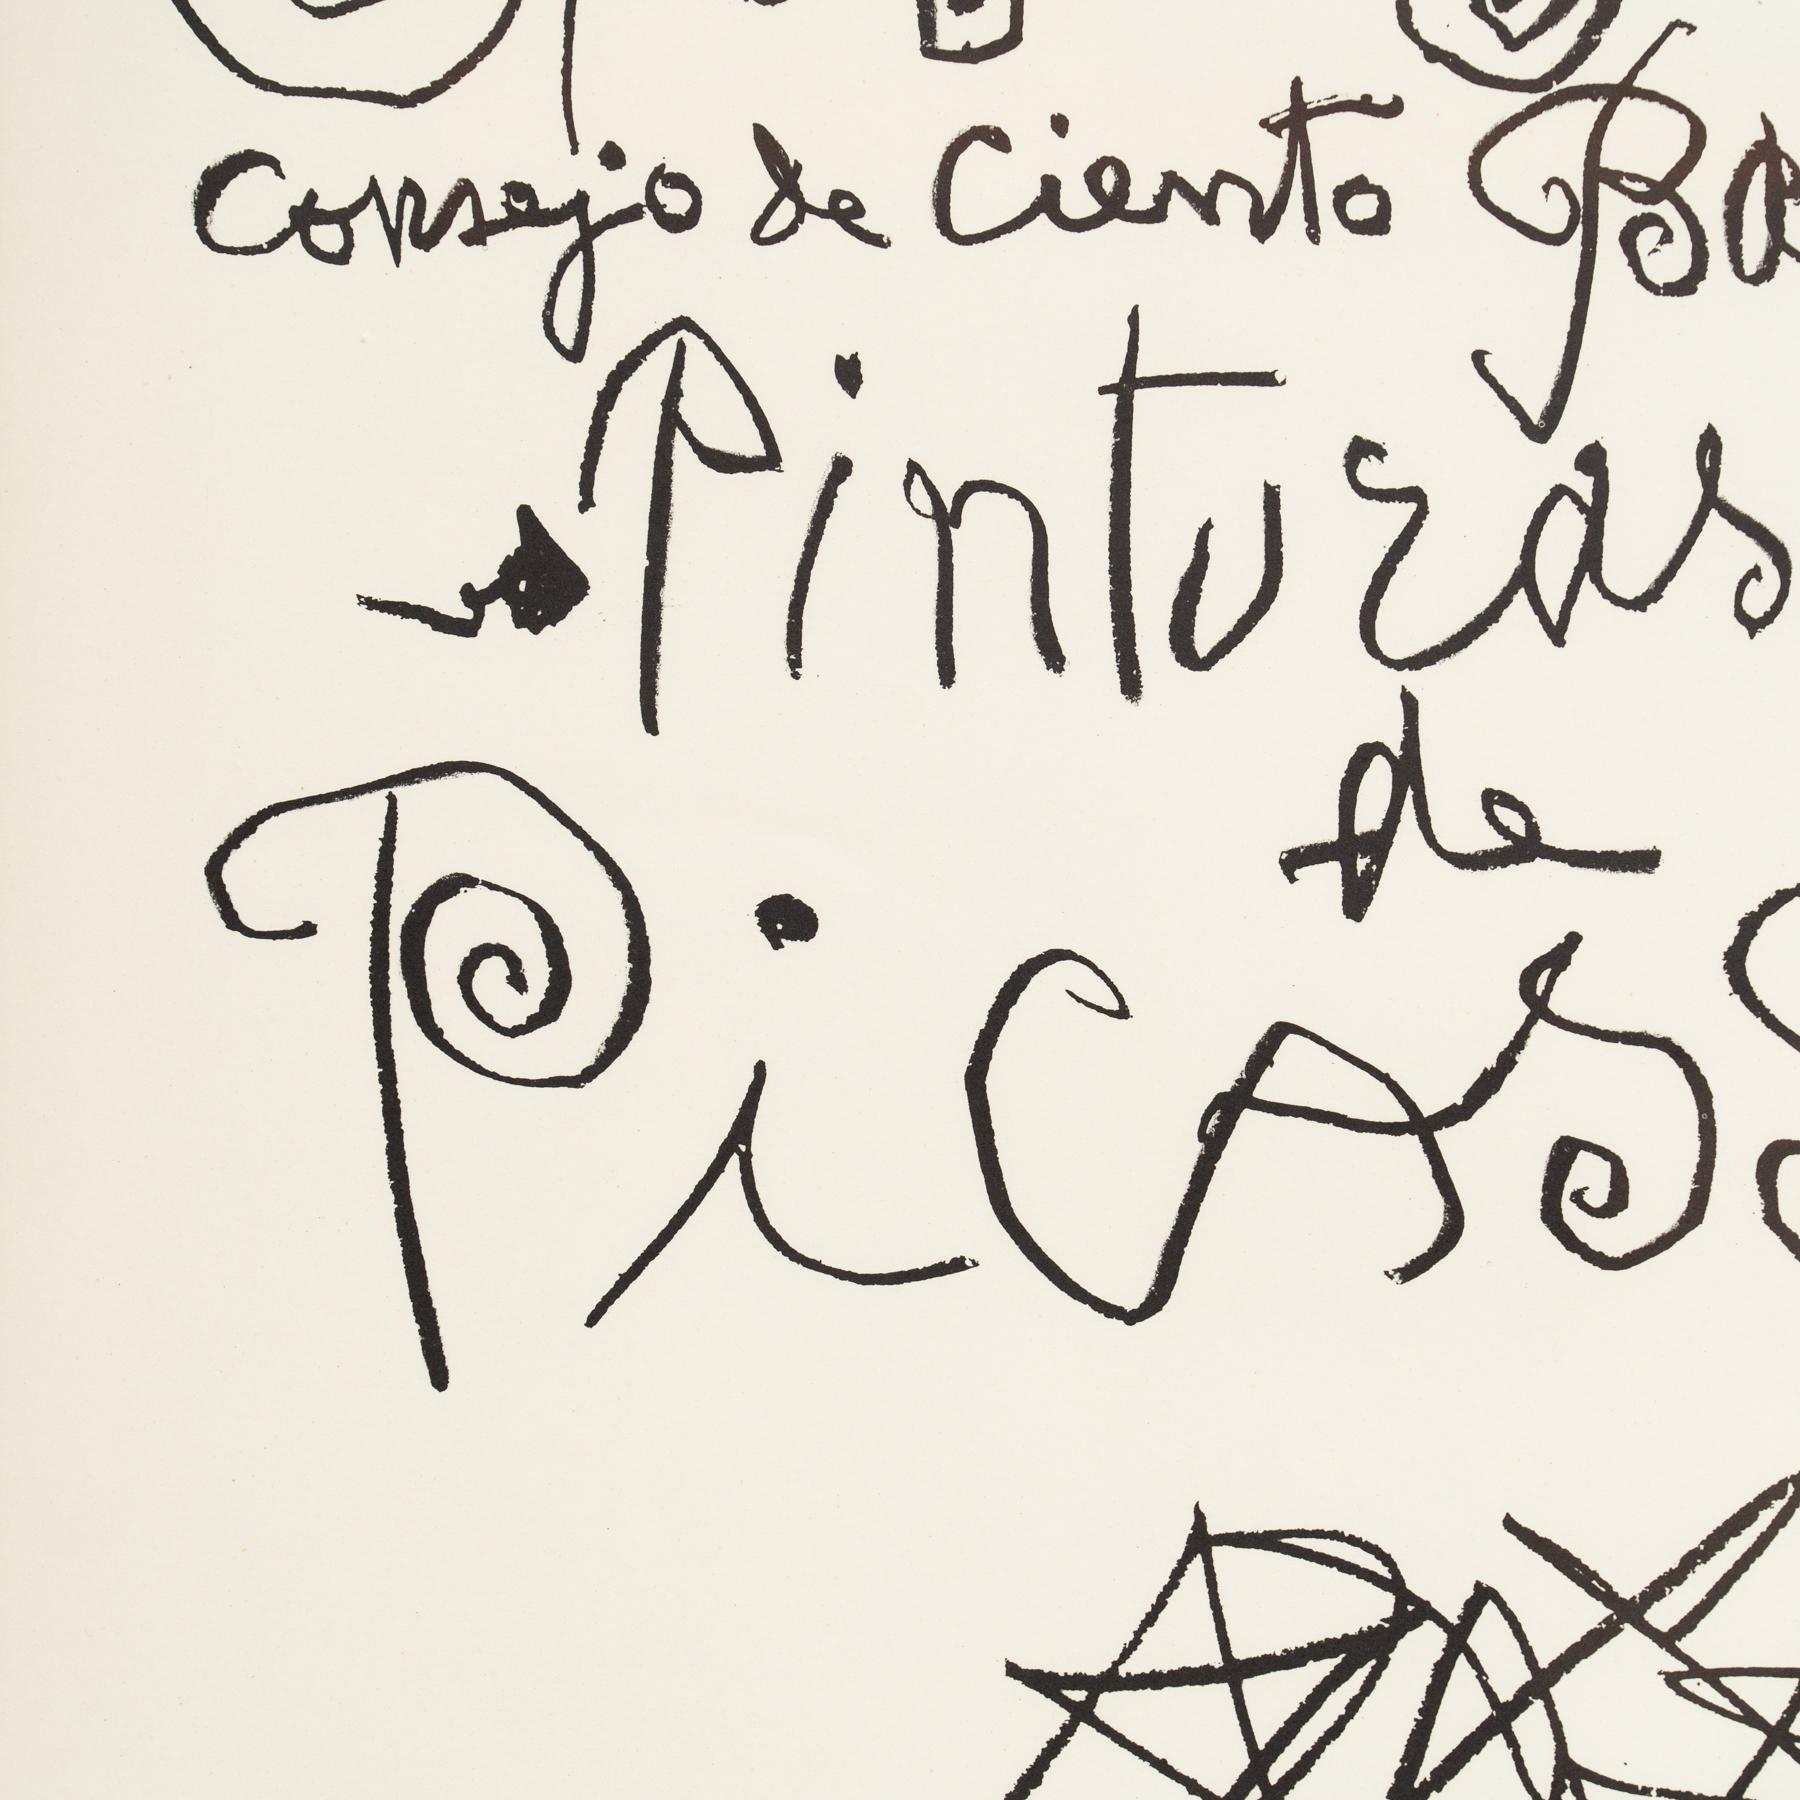 Consejo de Ciento Ba
Pinturas
de
Picass